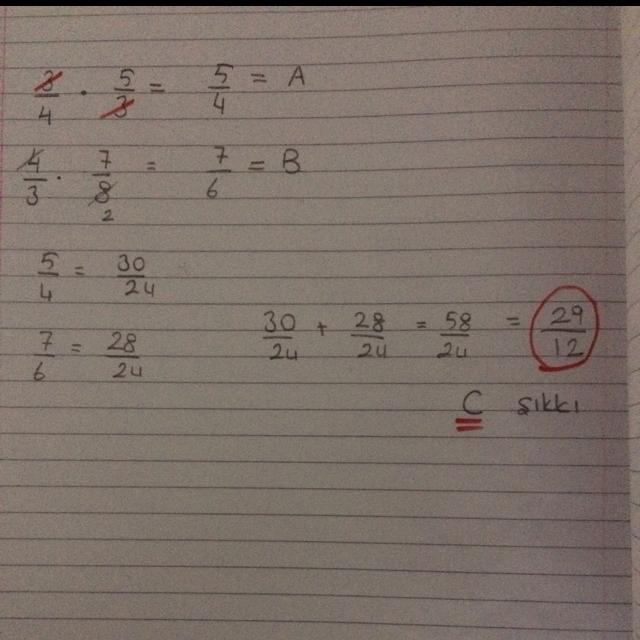 3/4 · 5/3 = 5/4 = A
4/3 · 7/8 2 = 7/6 = B
5/4 = 30/24
7/6 = 28/24
30/24 + 28/24 = 58/24 = 29/12
C şıkkı